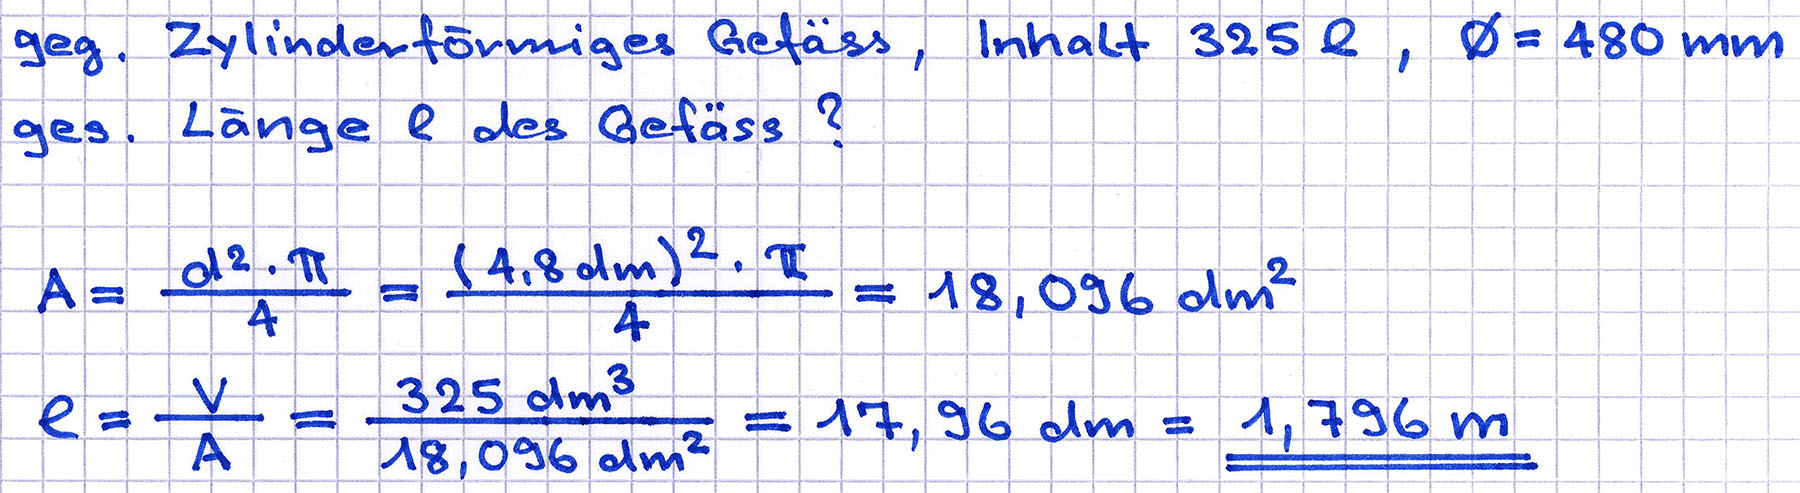 geg. Zylinderförmiges Gefäss, Inhalt 325 l, Ø = 480 mm
ges. Länge l des Gefäss?
A = d² · π / 4 = (4,8 dm)² · π / 4 = 18,096 dm²
l = V / A = 325 dm³ / 18,096 dm² = 17,96 dm = 1,796 m